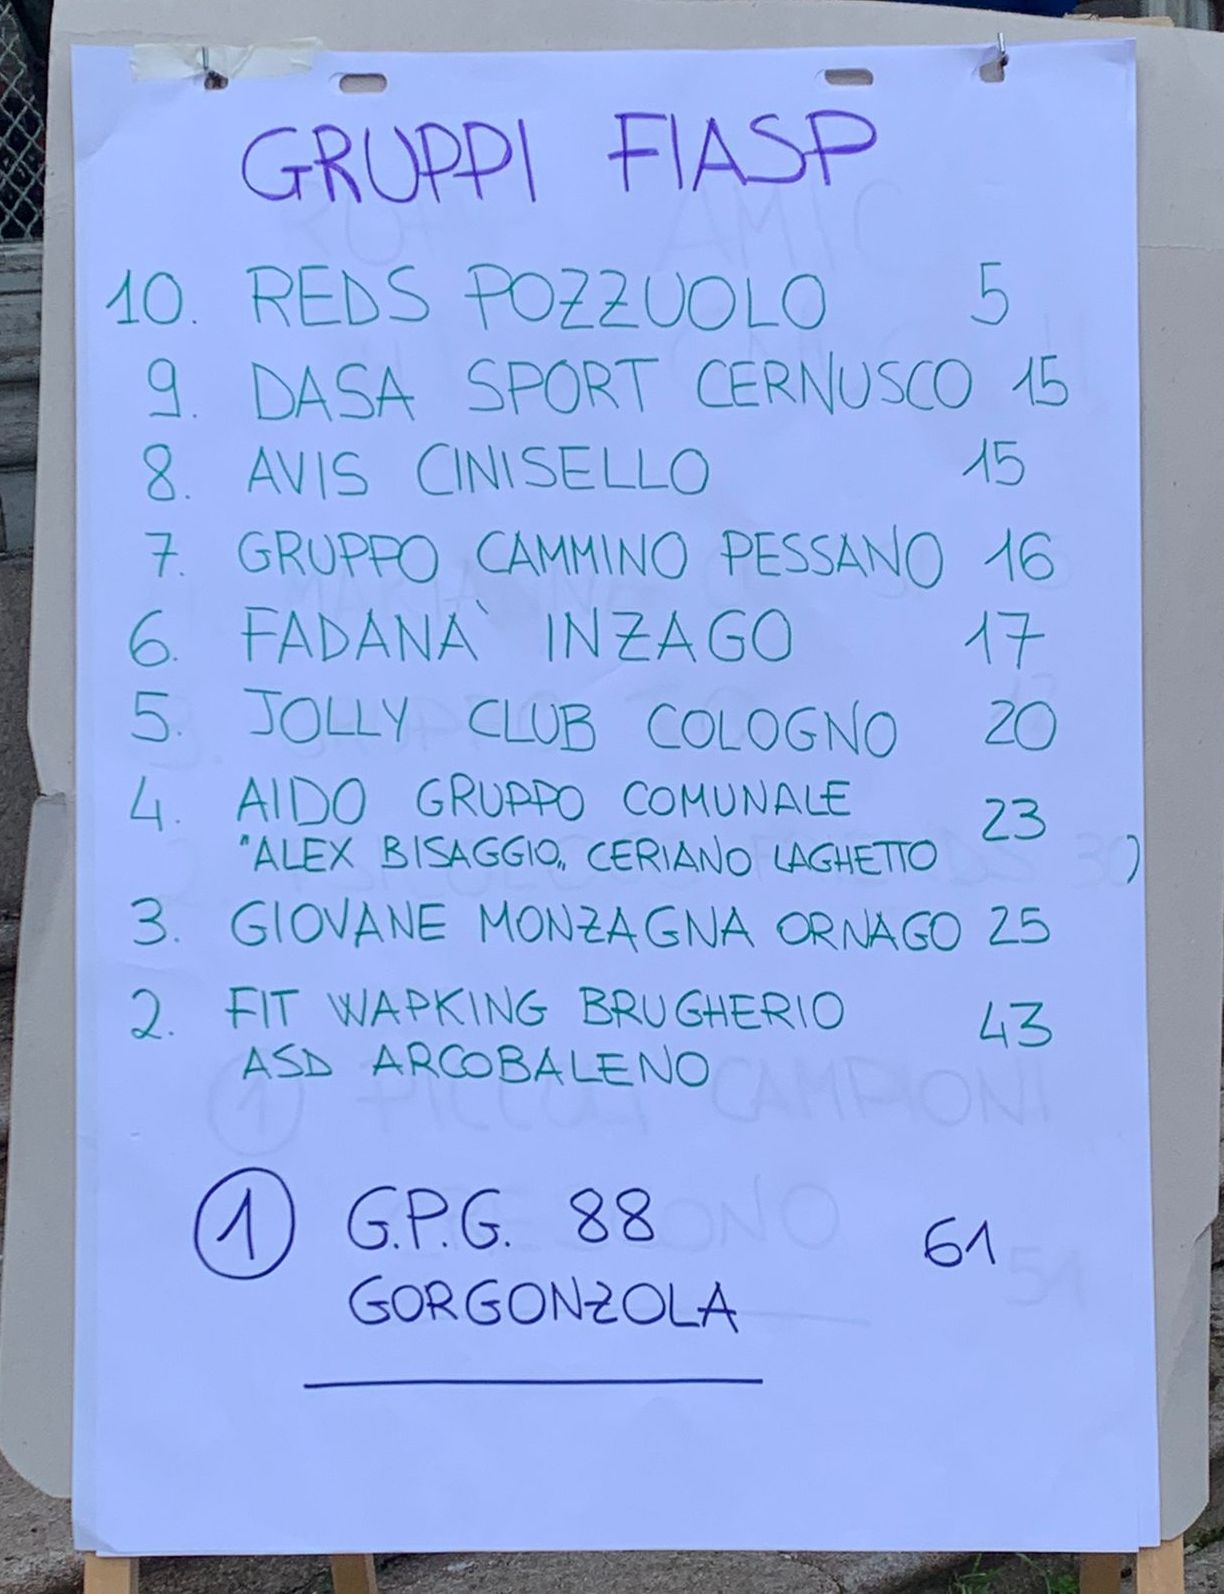 GRUPPI FIASP
10. REDS POZZUOLO 5
9. DASA SPORT CERNUSCO 15
8. AVIS CINISELLO 15
7. GRUPPO CAMMINO PESSANO 16
6. FADANA` INZAGO 17
5. JOLLY CLUB COLOGNO 20
4. AIDO GRUPPO COMUNALE 23
"ALEX BISAGGIO„ CERIANO LAGHETTO
3. GIOVANE MONZAGNA ORNAGO 25
2. FIT WAPKING BRUGHERIO 43
ASD ARCOBALENO
1 G.P.G. 88 61
GORGONZOLA